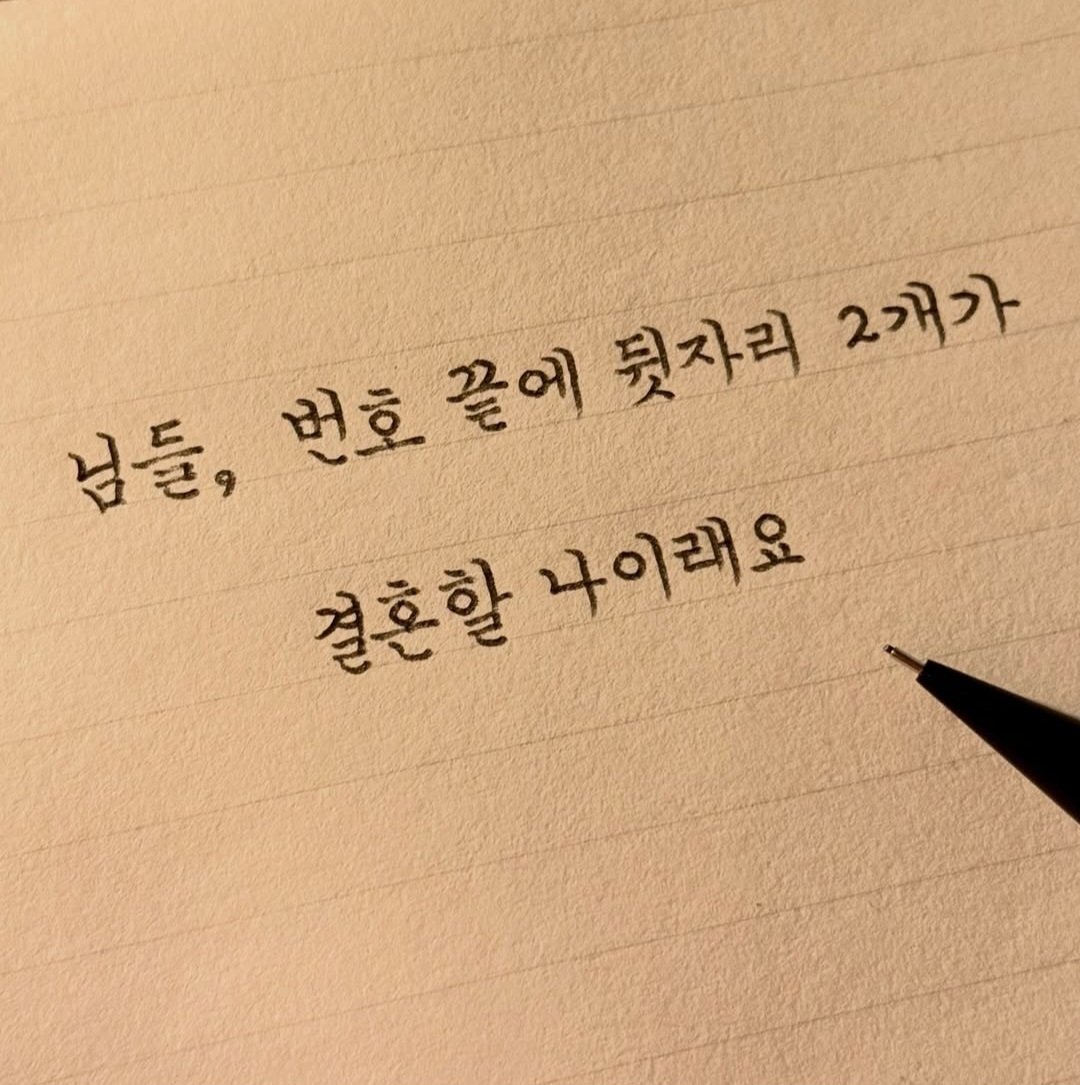 님들, 번호 끝에 뒷자리 2개가
결혼할 나이래요